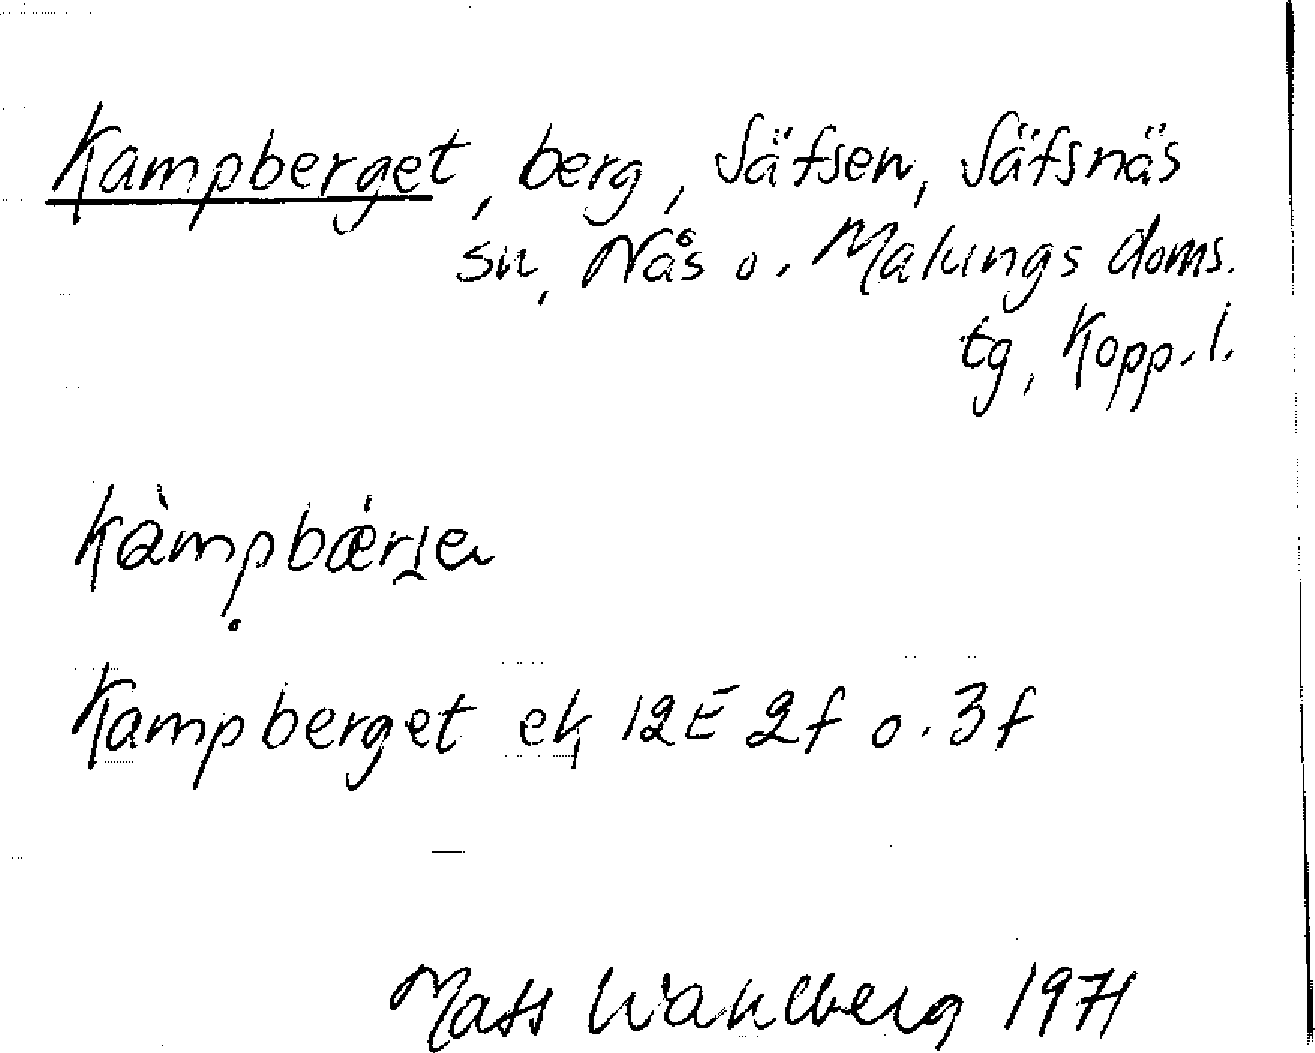 Kampberget, berg, Säfsen, Säfsnäs
sn, Nås o. Malungs doms.
tg, Kopp. l.
kàmpbæŕi̯eṇ
Kampberget ek 12E 2f o. 3f
—
Mats Wahlberg 1971